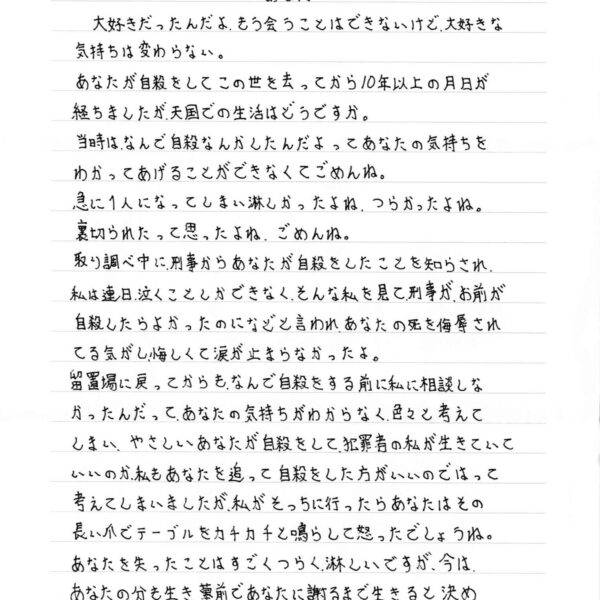 大好きだったんだよ、もう会うことはできないけど、大好きな
気持ちは変わらない。
あなたが自殺をしてこの世を去ってから10年以上の月日が
経ちましたが、天国での生活はどうですか。
当時は、なんで自殺なんかしたんだよってあなたの気持ちを
わかってあげることができなくてごめんね。
急に1人になってしまい淋しかったよね、つらかったよね。
裏切られたって思ったよね、ごめんね。
取り調べ中に、刑事からあなたが自殺をしたことを知らされ、
私は連日、泣くことしかできなく、そんな私を見て刑事が、お前が
自殺したらよかったのになどと言われ、あなたの死を侮辱され
てる気がし、悔しくて涙が止まらなかったよ。
留置場に戻ってからも、なんで自殺をする前に私に相談しな
かったんだって、あなたの気持ちがわからなく、色々と考えて
しまい、やさしいあなたが自殺をして、犯罪者の私が生きていて
いいのか、私もあなたを追って自殺をした方がいいのではって
考えてしまいましたが、私がそっちに行ったらあなたはその
長い爪でテーブルをカチカチと鳴らして怒ったでしょうね。
あなたを失ったことはすごくつらく、淋しいですが、今は、
あなたの分も生き墓前であなたに謝るまで生きると決め